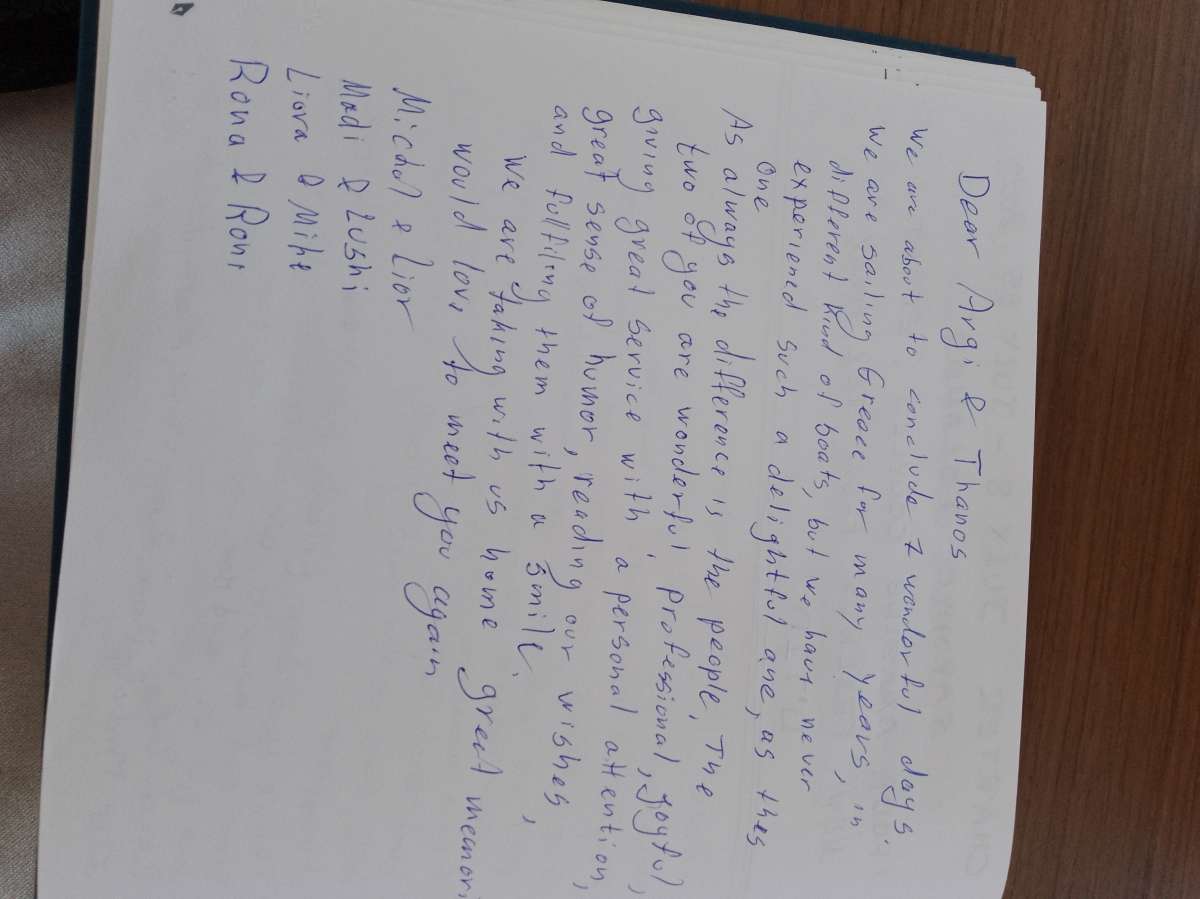 Dear Argi & Thanos
We are about to conclude 7 wonderful days.
We are sailing Greece for many years, in
different kind of boats, but we have never
experiened such a delightful one, as thes
one
As always the difference is the people. The
two of you are wonderful professional, joyful,
giving great service with a personal attention,
great sense of humor, reading our wishes,
and fulfiling them with a smile.
We are taking with us home great memori
would love to meet you again
Michal & Lior
Madi & Zushi
Liora & Mike
Rona & Roni